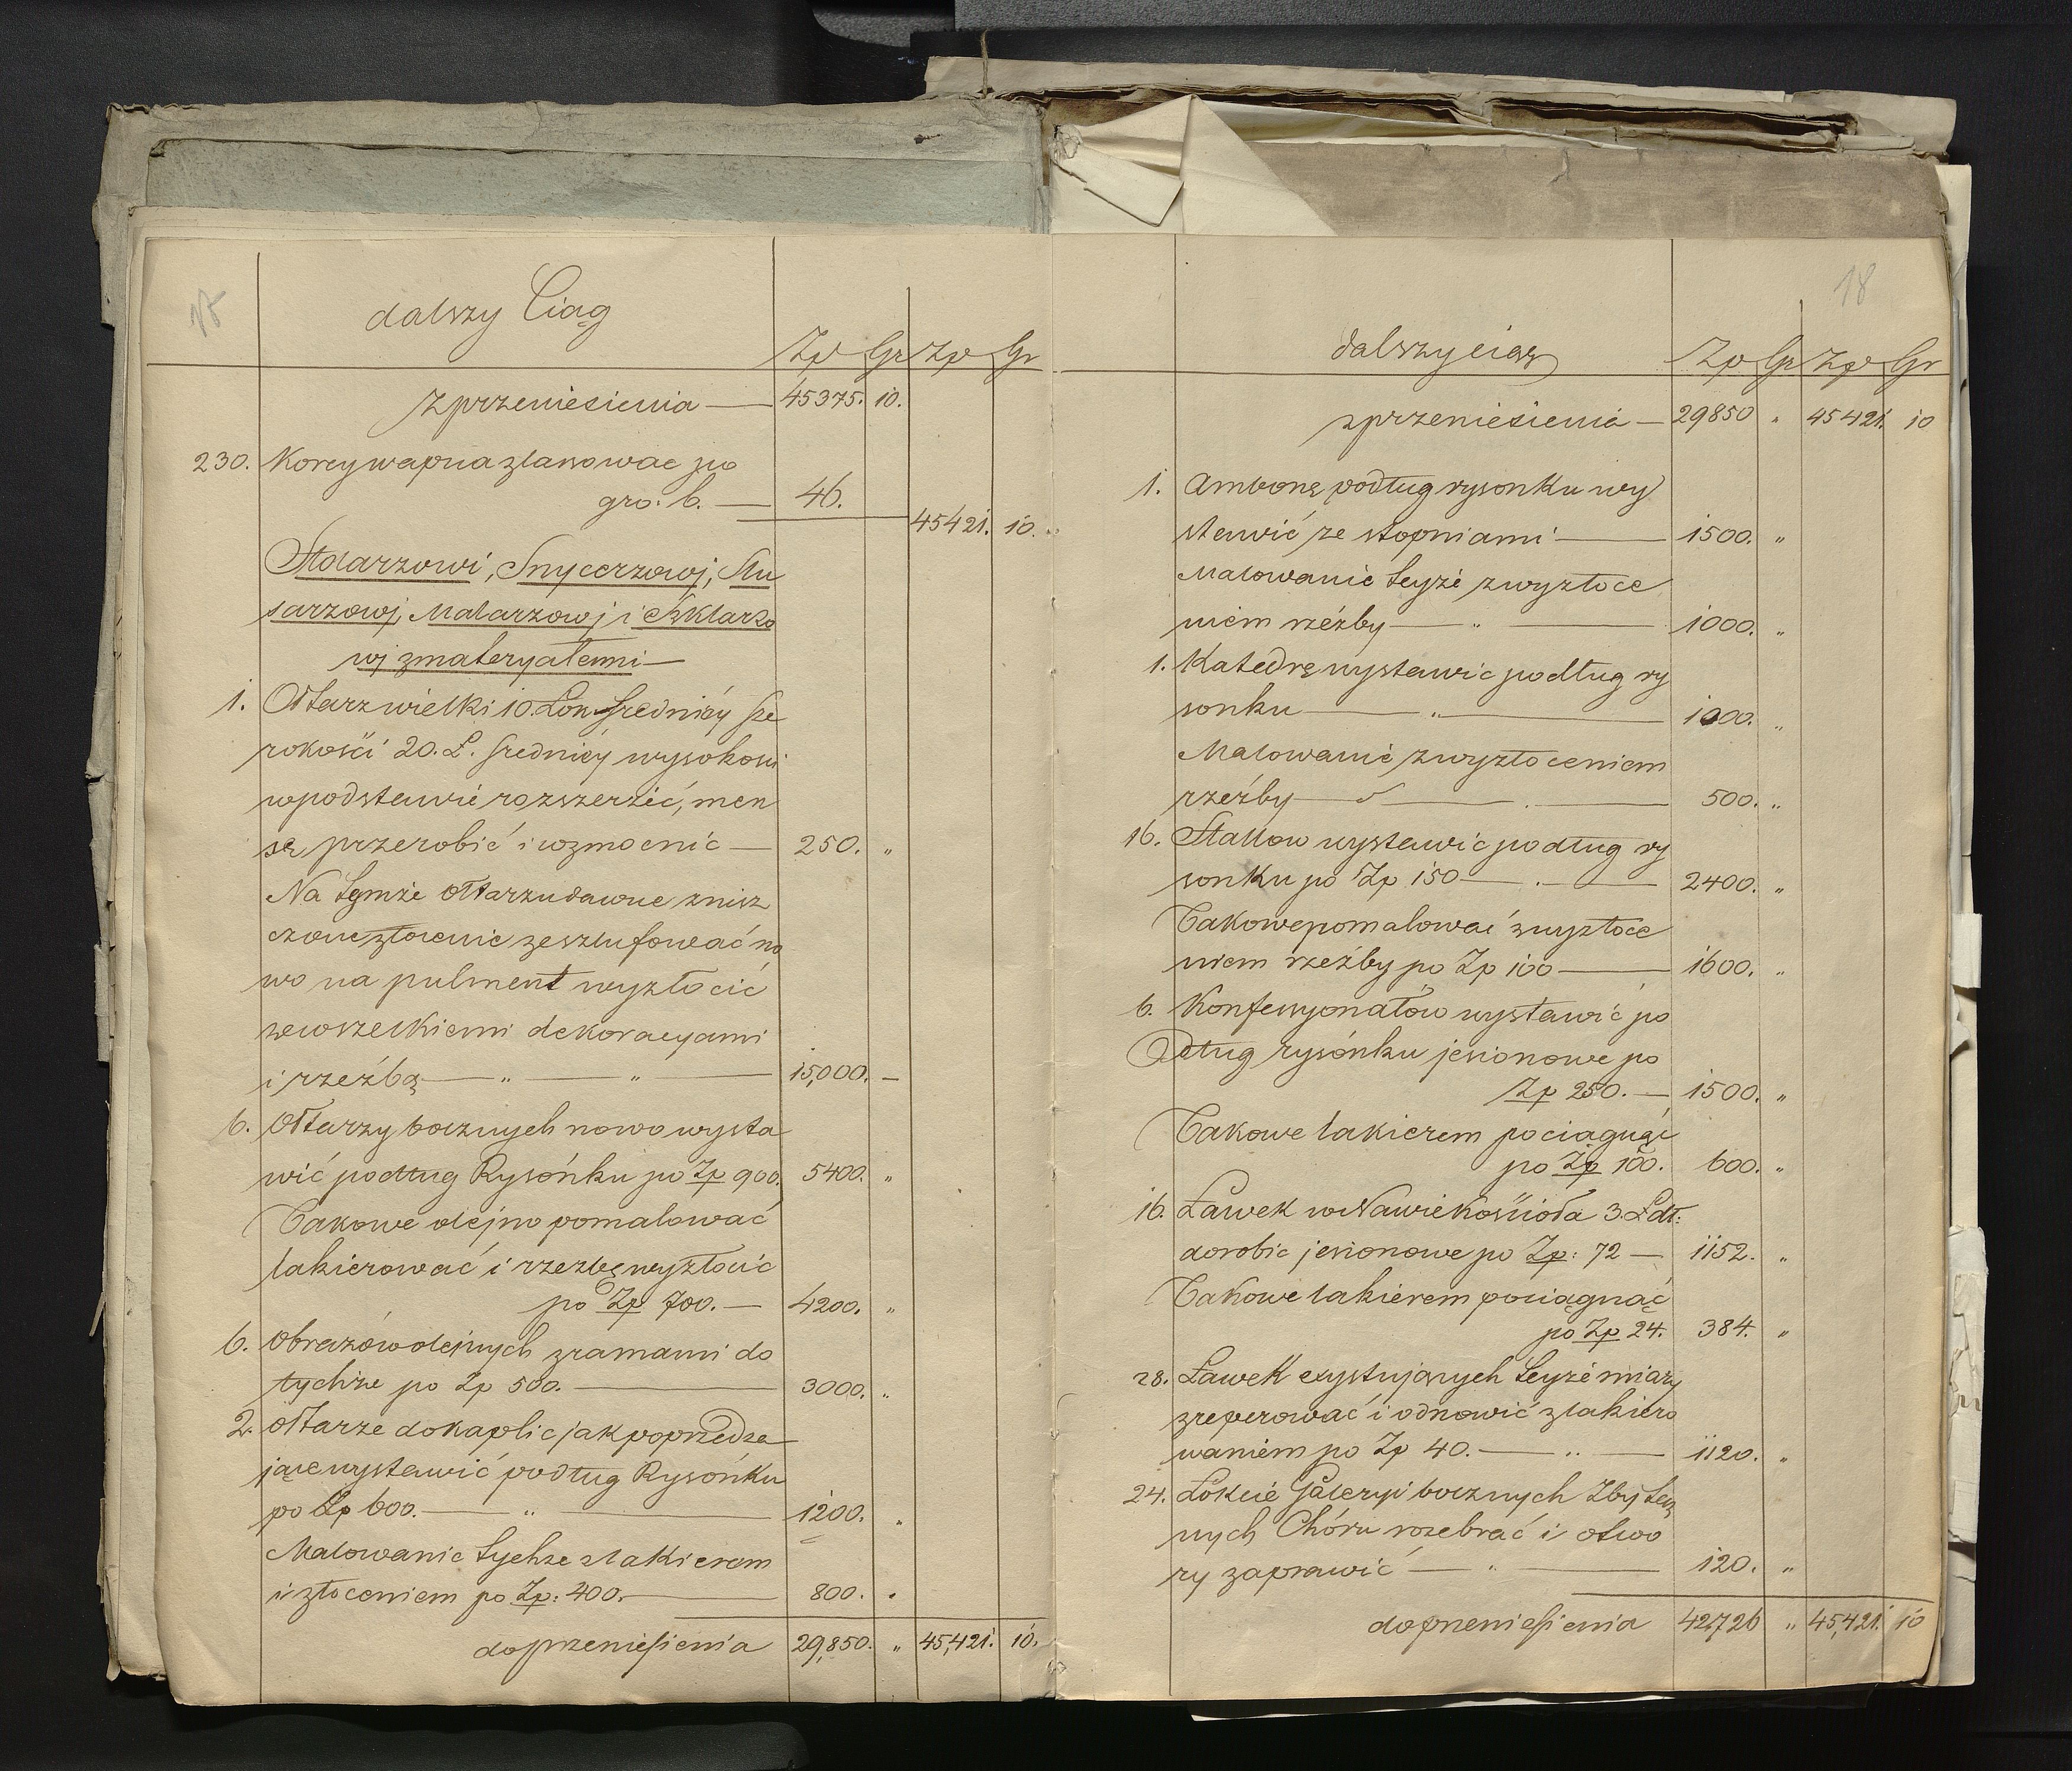 18
dalszy Ciąg
Zp Gr Zp Gr
z przeniesienia — 45375. 10.
230. Korcy wapna zlasować po
gro: 6. — 46.
45421. 10.
Stolarzowi, Snycerzowj, Slu
sarzowj, Malarzowj i Szklarzo
wj z materyałemi —
1. Ołtarz wielki 10. Łok średnicy sze
rokości 20. Ł. średnicy wysokosci
w podstawie rozszerzić, men
sę przerobić i wzmocnić — 250. „
Na tymże Ołtarzu dawne znisz
czone złocenie zeszlufować no
wo na pulment wyzłocić
ze wszelkiemi dekoracyami
i rzeźbą — „ — „ — 15,000. —
6. Ołtarzy bocznych nowo wysta
wić podług Rysónku po Zp 900. 5400. „
Takowe olejno pomalować
lakierować i rzezbę wyzłocić
po Zp 700. — 4200. „
6. Obrazów olejnych z ramami do
tychże po Zp 500. — 3000. „
2. Ołtarze do kaplic jak poprzedza
jące wystawić podług Rysónku
po Zp 600. — „ — 1200. „
Malowanie tychże z lakierem
i złoceniem po Zp: 400. — 800. „
do przeniesienia 29,850. „ 45,421. 10.
18
dalszy ciąg
Zp Gr Zp Gr
z przeniesienia — 29850 „ 45421. 10
1. Ambonę podług rysonku wy
stawić ze stopniami — 1500. „
Malowanie teyże z wyzłoce
niem rzeźby — „ — 1000. „
1. Katedrę wystawic podług ry
sonku — „ — 1000. „
Malowanie z wyzłoceniem
rzeźby — — 500. „
16. Stallow wystawić podług ry
sonku po Zp 150 — . — 2400. „
Takowe pomalować z wyzłoce
niem rzeźby po Zp 100 — 1600. „
6. Konfesyonałów wystawić po
dług rysónku jesionowe po
Zp 250. — 1500. „
Takowe lakierem pociągnąć
po Zp 100. 600. „
16. Ławek w Nawie Kościoła 3. Ł dł:
dorobic jesionowe po Zp: 72 — 1152. „
Takowe lakierem pociągnąć
po Zp 24. 384. „
28. Ławek exystujących teyże miary
zreperować i odnowić z lakiero
waniem po Zp 40. — „ — 1120. „
24. Łokcie Galeryi bocznych zbytecz
nych Chóru rozebrać i otwo
ry zaprawić — „ — 120. „
do przeniesienia 42,726 „ 45,421. 10